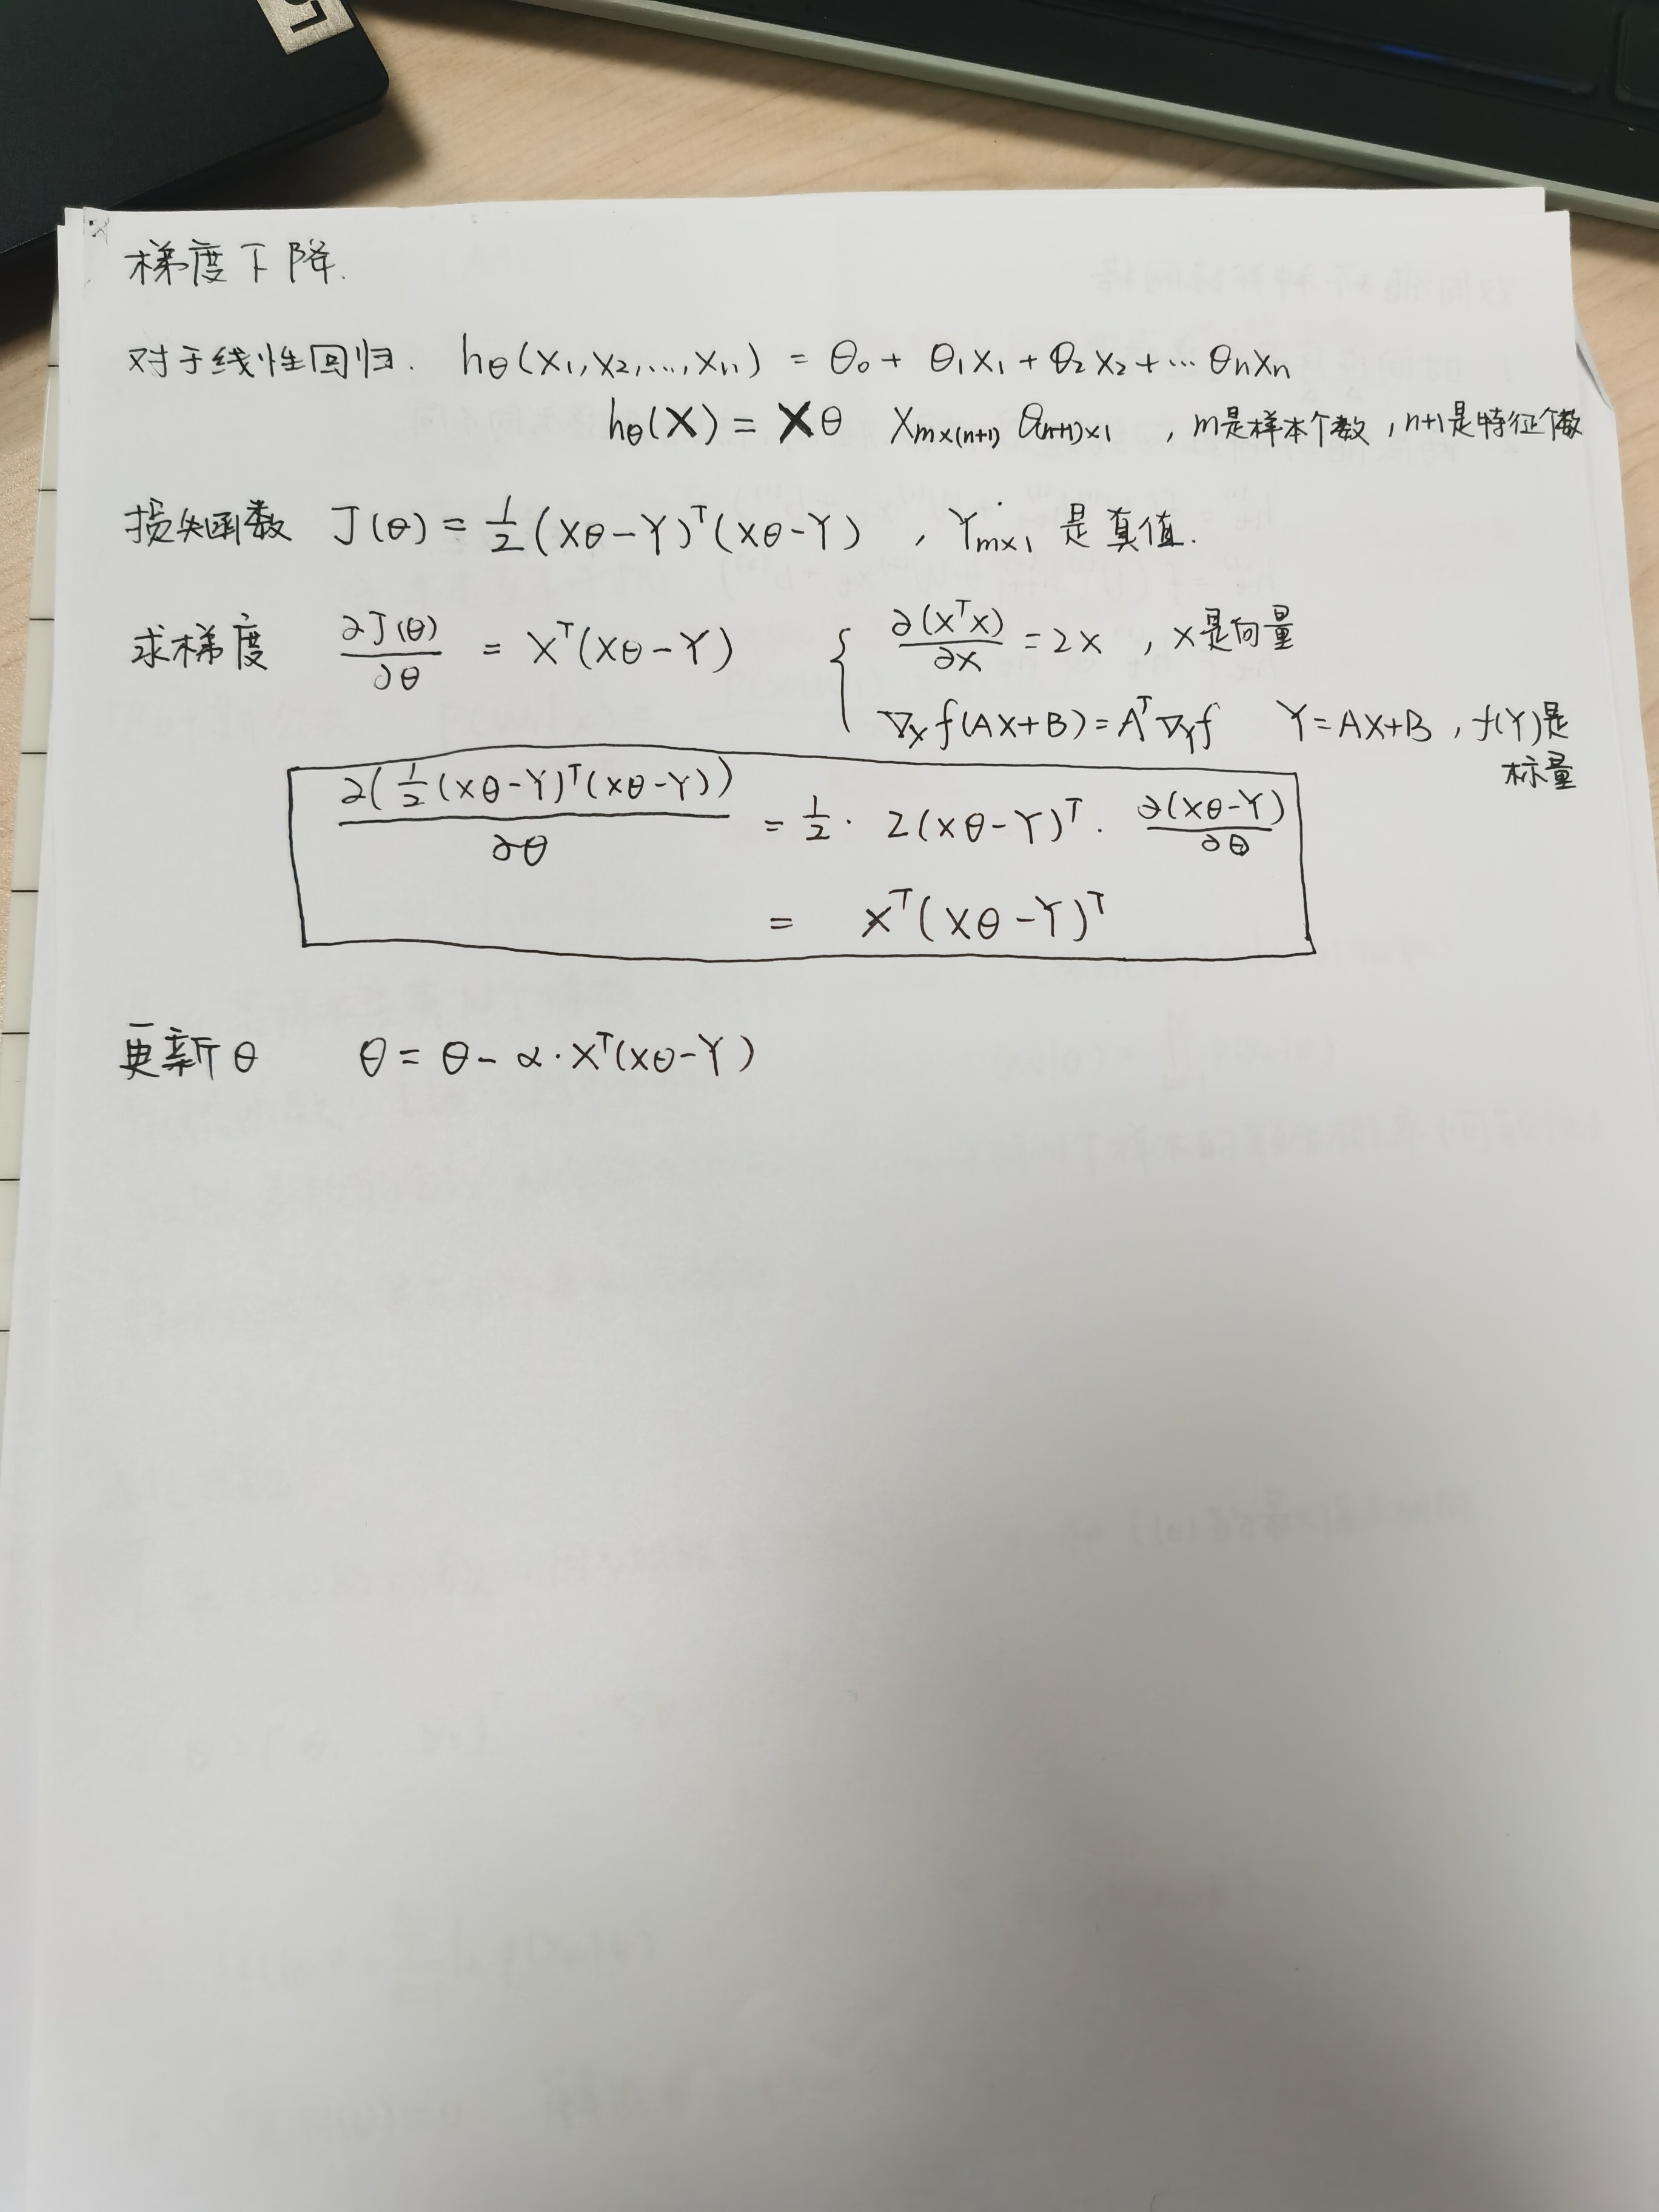 梯度下降.
对于线性回归. hθ(x₁,x₂,...,xₙ) = θ₀ + θ₁x₁ + θ₂x₂ + … θₙxₙ
hθ(X) = Xθ X_{m×(n+1)} θ_{(n+1)×1} , m是样本个数 , n+1是特征个数
损失函数 J(θ) = 1/2 (Xθ-Y)ᵀ(Xθ-Y) , Y_{m×1} 是真值.
求梯度 ∂J(θ)/∂θ = Xᵀ(Xθ-Y) { ∂(xᵀx)/∂x = 2x , x是向量
∇ₓf(AX+B) = Aᵀ∇_Y f Y=AX+B , f(Y)是
标量
∂(1/2 (Xθ-Y)ᵀ(Xθ-Y))/∂θ = 1/2 · 2(Xθ-Y)ᵀ · ∂(Xθ-Y)/∂θ
= Xᵀ(Xθ-Y)ᵀ
更新θ θ = θ - α·Xᵀ(Xθ-Y)